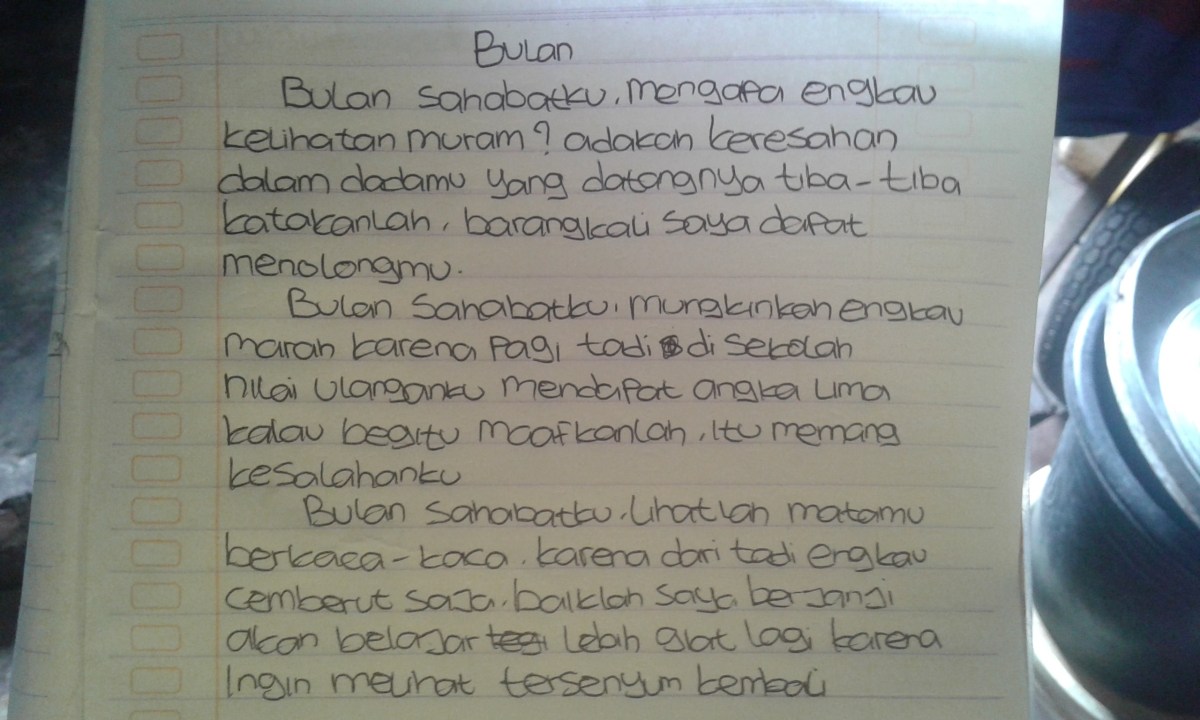 Bulan
Bulan sahabatku, mengapa engkau
kelihatan muram? adakah keresahan
dalam dadamu yang datangnya tiba-tiba
katakanlah, barangkali saya dapat
menolongmu.
Bulan sahabatku, mungkinkah engkau
marah karena pagi tadi di sekolah
nilai ulanganku mendapat angka lima
kalau begitu maafkanlah, itu memang
kesalahanku
Bulan sahabatku, lihatlah matamu
berkaca-kaca, karena dari tadi engkau
cemberut saja, baiklah saya berjanji
akan belajar lebih giat lagi karena
Ingin melihat tersenyum kembali